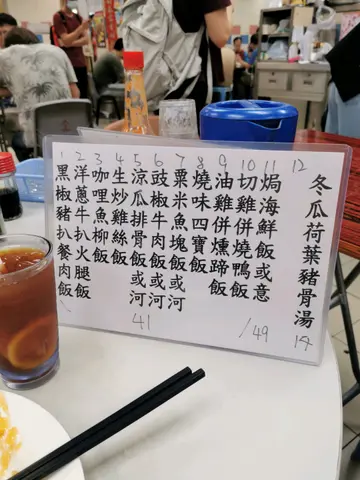 1 黑椒豬扒餐肉飯
2 洋蔥牛扒火腿飯
3 咖哩魚柳飯
4 生炒雞絲飯
5 涼瓜排骨飯或河
6 豉椒牛肉飯或河
7 粟米魚塊飯或河
8 燒味四寶飯
9 油雞併燻蹄飯
10 切雞併燒鴨飯
11 焗海鮮飯或意
12 冬瓜荷葉豬骨湯 14
41
/49